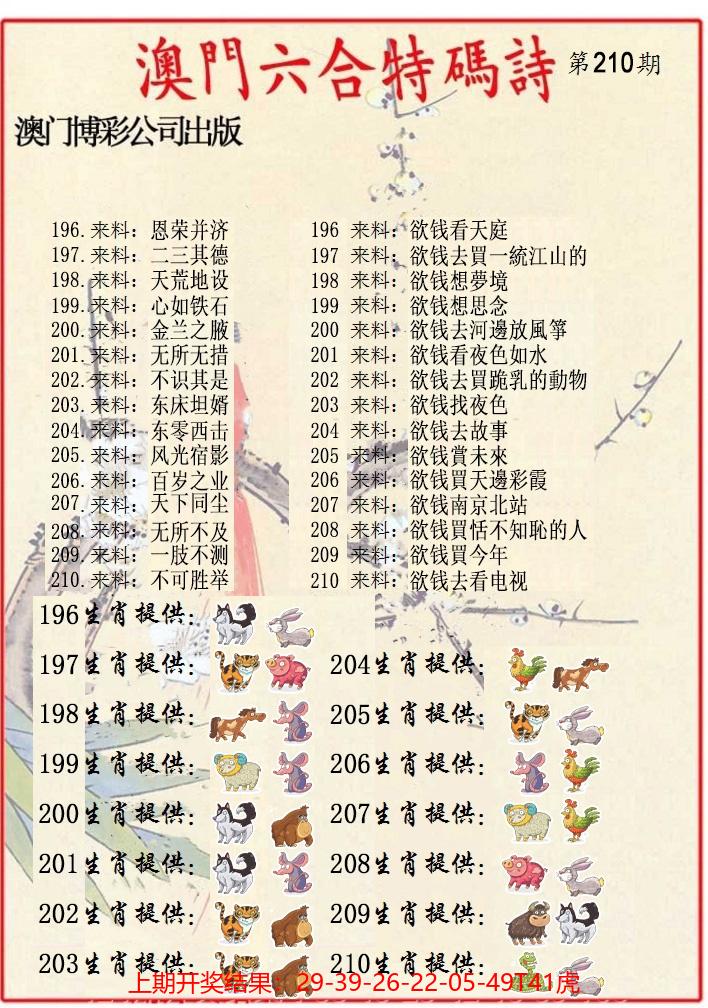 澳門六合特碼詩 第210期
澳门博彩公司出版
196.来料：恩荣并济
197.来料：二三其德
198.来料：天荒地设
199.来料：心如铁石
200.来料：金兰之腋
201.来料：无所无措
202.来料：不识其是
203.来料：东床坦婿
204.来料：东零西击
205.来料：风光宿影
206.来料：百岁之业
207.来料：天下同尘
208.来料：无所不及
209.来料：一肢不测
210.来料：不可胜举
196 来料：欲钱看天庭
197 来料：欲钱去買一統江山的
198 来料：欲钱想夢境
199 来料：欲钱想思念
200 来料：欲钱去河邊放風箏
201 来料：欲钱看夜色如水
202 来料：欲钱去買跪乳的動物
203 来料：欲钱找夜色
204 来料：欲钱去故事
205 来料：欲钱賞未來
206 来料：欲钱買天邊彩霞
207 来料：欲钱南京北站
208 来料：欲钱買恬不知恥的人
209 来料：欲钱買今年
210 来料：欲钱去看电视
196生肖提供：
197生肖提供：
198生肖提供：
199生肖提供：
200生肖提供：
201生肖提供：
202生肖提供：
203生肖提供：
204生肖提供：
205生肖提供：
206生肖提供：
207生肖提供：
208生肖提供：
209生肖提供：
210生肖提供：
上期开奖结果：29-39-26-22-05-49T41虎